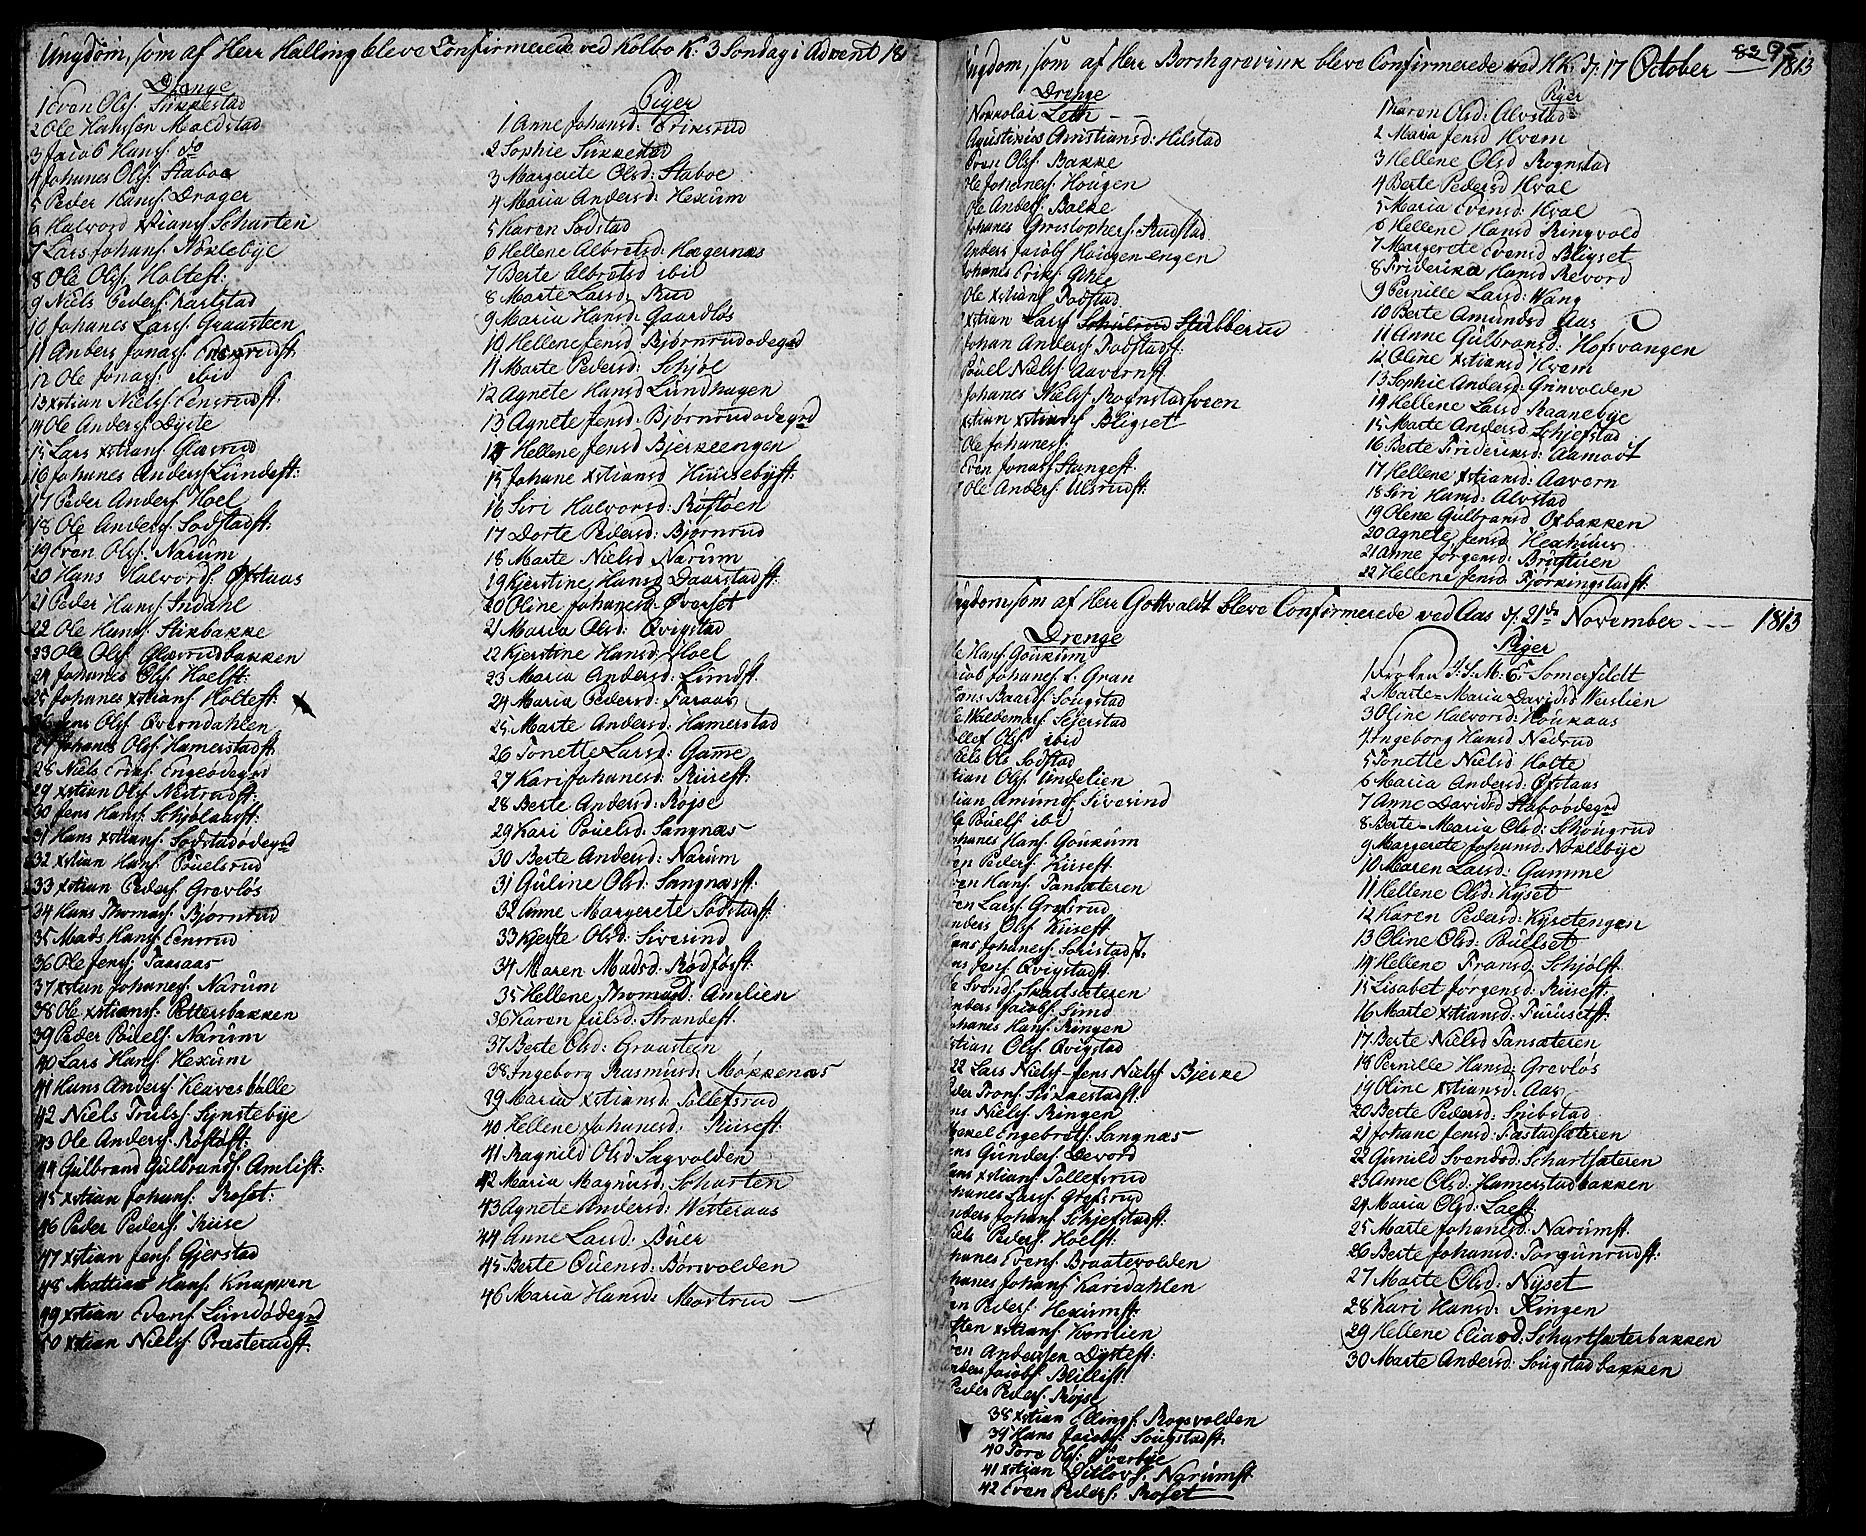 Ungdom, som af Herr Halling bleve Confirmerede ved Kolbo K. 3 Søndag i Advent 18
Drenge
1 Even Olsf. Sükkestad
2 Ole Hanssøn Maldstad
3 Jacob Hansf. do
4 Johanes Olsf. Staboe
5 Peder Hansf. Drager
6 Halvord Xstiansf. Scharten
7 Lars Johansf. Nøklebye
8 Ole Olsf. Holteft.
9 Niels Pedersf. Karlstad
10 Johanes Larsf. Graasteen
11 Anders Jonasf. Ensrudft.
12 Ole Jonasf. ibid
13 Xstian Nielsf. Eensrudft.
14 Ole Andersf. Dyste
15 Lars Xstiansf. Glæsrud
16 Johanes Andersf. Lundeft:
17 Peder Andersf. Hoel
18 Ole Andersf. Sodstadft.
19 Even Olsf. Narüm
20 Hans Halvordsf. Øxtaas
21 Peder Hansf. Indahl
22 Ole Hansf. Stikbakke
23 Ole Olsf. Glæsrudbakken
24 Johanes Olsf. Hoelft.
25 Johanes Xstiansf. Holteft.
Jens Olsf. Qverndahlen
27 Johanes Olsf. Hamerstadft.
28 Niels Eriksf. Engeødegrd
29 Xstian Olsf. Nestrudft.
30 Jens Hansf. Schjølaasft.
31 Hans Xstiansf. Sodstadødegrd
32 Xstian Hansf. Pouelsrud
33 Xstian Pedersf. Grevløs
34 Hans Thomasf. Bjørnrud
35 Mads Hansf. Eensrud
36 Ole Jensf. Taraas
37 Xstian Johanesf. Narüm
38 Ole Xstiansf. Pettersbakken
39 Peder Pouelsf. Narüm
40 Lars Hansf. Hexum
41 Hans Andersf. Kløvesbølle
42 Niels Trulsf. Synstebye
43 Ole Andersf. Røstøft.
44 Gulbrand Gulbrandsf. Amlift:
45 Xstian Johansf. Roset:
46 Peder Pedersf. Riise
47 Xstian Jensf. Gjerstad
48 Mattias Hansf. Knappen
49 Xstian Evensf. Lundødegrd
50 Xstian Nielsf. Præsterudft.
Piger
1 Anne Johansd: Eriksrud
2 Sophie Sükkestad
3 Margerete Olsd: Staboe
4 Maria Andersd: Hexum
5 Karen Sodstad
6 Hellene Albretsd. Hægernæs
7 Berte Albretsd ibid
8 Marte Larsd. Rud
9 Maria Hansd: Gaardløs
10 Hellene Jensd Bjørnrudødegrd
11 Marte Pedersd: Schjøl
12 Agnete Hansd Lundhagen
13 Agnete Jensd: Bjørnrudødegrd
14 Hellene Jensd Bjerkeengen
15 Johane Xstiansd Huusebyft:
16 Siri Halvorsd: Røstøen
17 Dorte Pedersd: Bjørnrud
18 Marte Nielsd Narüm
19 Kjerstine Hansd Daarstadft:
20 Oline Johanesd: Øverset
21 Maria Olsd: Qvigstad
22 Kjerstine Hansd Hoel
23 Maria Andersd: Lundft.
24 Maria Pedersd: Taraas
25 Marte Andersd: Hamerstad
26 Tonette Larsd: Game
27 Kari Johanesd: Riiseft:
28 Berte Andersd: Røise
29 Kari Pouelsd: Sangnæs
30 Berte Andersd: Narüm
31 Guline Olsd: Sangnæsft.
32 Anne Margerete Sodstadft.
33 Kjerste Olsd: Sivesind
34 Maren Madsd: Rødfosft:
35 Hellene Thomasd: Amlien
36 Karen Julsd: Strandeft.
37 Berte Olsd: Graasteen
38 Ingeborg Rasmusd: Møkkenæs
39 Maria Xstiansd: Tollefsrud
40 Hellene Johanesd: Riiseft:
41 Ragnild Olsd Sagvolden
42 Maria Magnusd: Scharten
43 Agnete Andersd: Wetteraas
44 Anne Larsd: Buer
45 Berte Ouensd: Børsvolden
46 Maria Hansd: Mostrud
Ungdom, som af Herr Borchgrevink bleve Confirmerede ved HK. d. 17 October 1813
83 95.
Drenge
Nikkolai Leth
Agustinus Christiansd: Hilstad
Even Olsf. Bakke
Ole Johanesf. Hougen
Ole Andersf. Balke
Johanes Christophersf. Rudstad
Anders Jacobsf. Hougen-engen
Johanes Eriksf.
Ole Xstiansf. Fodstad
Xstian Larsf Schulerud Stubberud
Johan Andersf. Fodstadft:
Pouel Nielsf. Aavernft.
Johanes Nielsf. Rognstadsveen
Xstian Xstiansf. Bligset
Ole Johanesf:
Even Jonasf. Stangeft.
17 Ole Andersf. Ulsrudft:
Piger
1 Karen Olsd: Alvstad
2 Maria Jensd Hvem
3 Hellene Olsd Rognstad
4 Berte Pedersd Hval
5 Maria Evensd: Hval
6 Hellene Hansd Ringvold
7 Margerete Evensd Bligset
8 Friderika Hansd Revord
9 Pernille Larsd: Wang
10 Berte Amundsd Aas
11 Anne Gulbransd: Hofsvangen
12 Oline Xstiansd Hvem
13 Sophie Andersd: Grinvolden
14 Hellene Larsd Raanebye
15 Marte Andersd: Schjefstad
16 Berte Frideriksd: Aamodt
17 Hellene Xstiansd: Aavern
18 Siri Hansd: Alvstad
19 Olene Gulbransd Oxbakken
20 Agnete Jensd
21 Anne Jørgensd: Brustuen
22 Hellene Jensd Fjørkingstadft.
Ungdom, som af Herr Gottvaldt bleve Confirmerede ved Aas d. 21de November 1813
Drenge
Ole Hansf. Goukum
Jacob Johanesf. Gran
Hans Baardsf. Sougstad
Ole Waldemarsf. Sejerstad
Tollef Olsf. ibid
Niels Ols Sodstad
Xstian Olsf. Undelien
Xstian Amundsf. Sivesind
Ole Pouelsf. ibd
Johanes Hansf. Goukum
Even Pedersf. Kiüseft
Even Hansf. Tansæteren
Even Larsf. Grøfsrud
Anders Olsf. Kiüseft
Hans Johanesf: Sougstadft.
Jens Jensf. Qvigstadft.
Ole Svendsf. Skartsæteren
Anders Jacobsf. Lund
Johanes Hansf. Ringen
Xstian Olsf. Qvigstad
22 Lars Nielsf - Jens Nielsf Bjerke
Peder Tronsf. Sükkestadft:
Jens Nielsf. Ringen
Axel Engebretsf. Sangnæs
Jens Gundersf. Devord
Hans Xstiansf. Tollefsrud
Johanes Larsf. Grøfsrud
Anders Johansf. Schjefstadft.
Niels Pedersf. Hoelft.
Johanes Evensf. Braatevolden
Johanes Johansf. Karidahlen
Even Pedersf. Hexumft:
Xstiansf. Korslien
Even Anderssen Dysteft:
Anders Jacobsf. Blilieft:
Peder Pedersf. Røise
38 Xstian Ellingsf. Rogsvolden
39 Hans Jacobsf. Sougstadft.
40 Tore Olsf. Øverbye
41 Xstian Ditlovsf. Narümft
42 Even Pedersf. Roset
Piger
1 Frøken S. S. M. E. Somerfeldt
2 Marte-Maria Davidsd Weslien
3 Oline Halvorsd: Houkaas
4 Ingeborg Hansd Nedrud
5 Tonette Nielsd Holte
6 Maria Andersd: Øxtaas
7 Anne Davidsd Staboødegrd
8 Berte-Maria Olsd: Schougrud
9 Margerete Johansd: Nøklebye
10 Maren Larsd: Gamme
11 Hellene Olsd: Kyset
12 Karen Pedersd: Kysetengen
13 Oline Olsd: Bullset
14 Hellene Fransd: Schjølft.
15 Lisabet Jørgensd: Riiseft.
16 Marte Xstiansd: Furusetft.
17 Berte Nielsd Tansæteren
18 Pernille Hansd: Grevløs
19 Oline Xstiansd: Aas
20 Berte Pedersd: Snibstad
21 Johane Jensd: Fæstadsæteren
22 Gunild Svendsd: Schartsæteren
23 Anne Olsd: Hamerstadbakken
24 Maria Olsd: Laeft
25 Marte Johanesd: Narumft
26 Berte Johansd: Torgunrudft:
27 Marte Olsd: Nyset
28 Kari Hansd: Ringen
29 Hellene Eliasd: Schartsæterbakken
30 Marte Andersd: Sougstadbakken